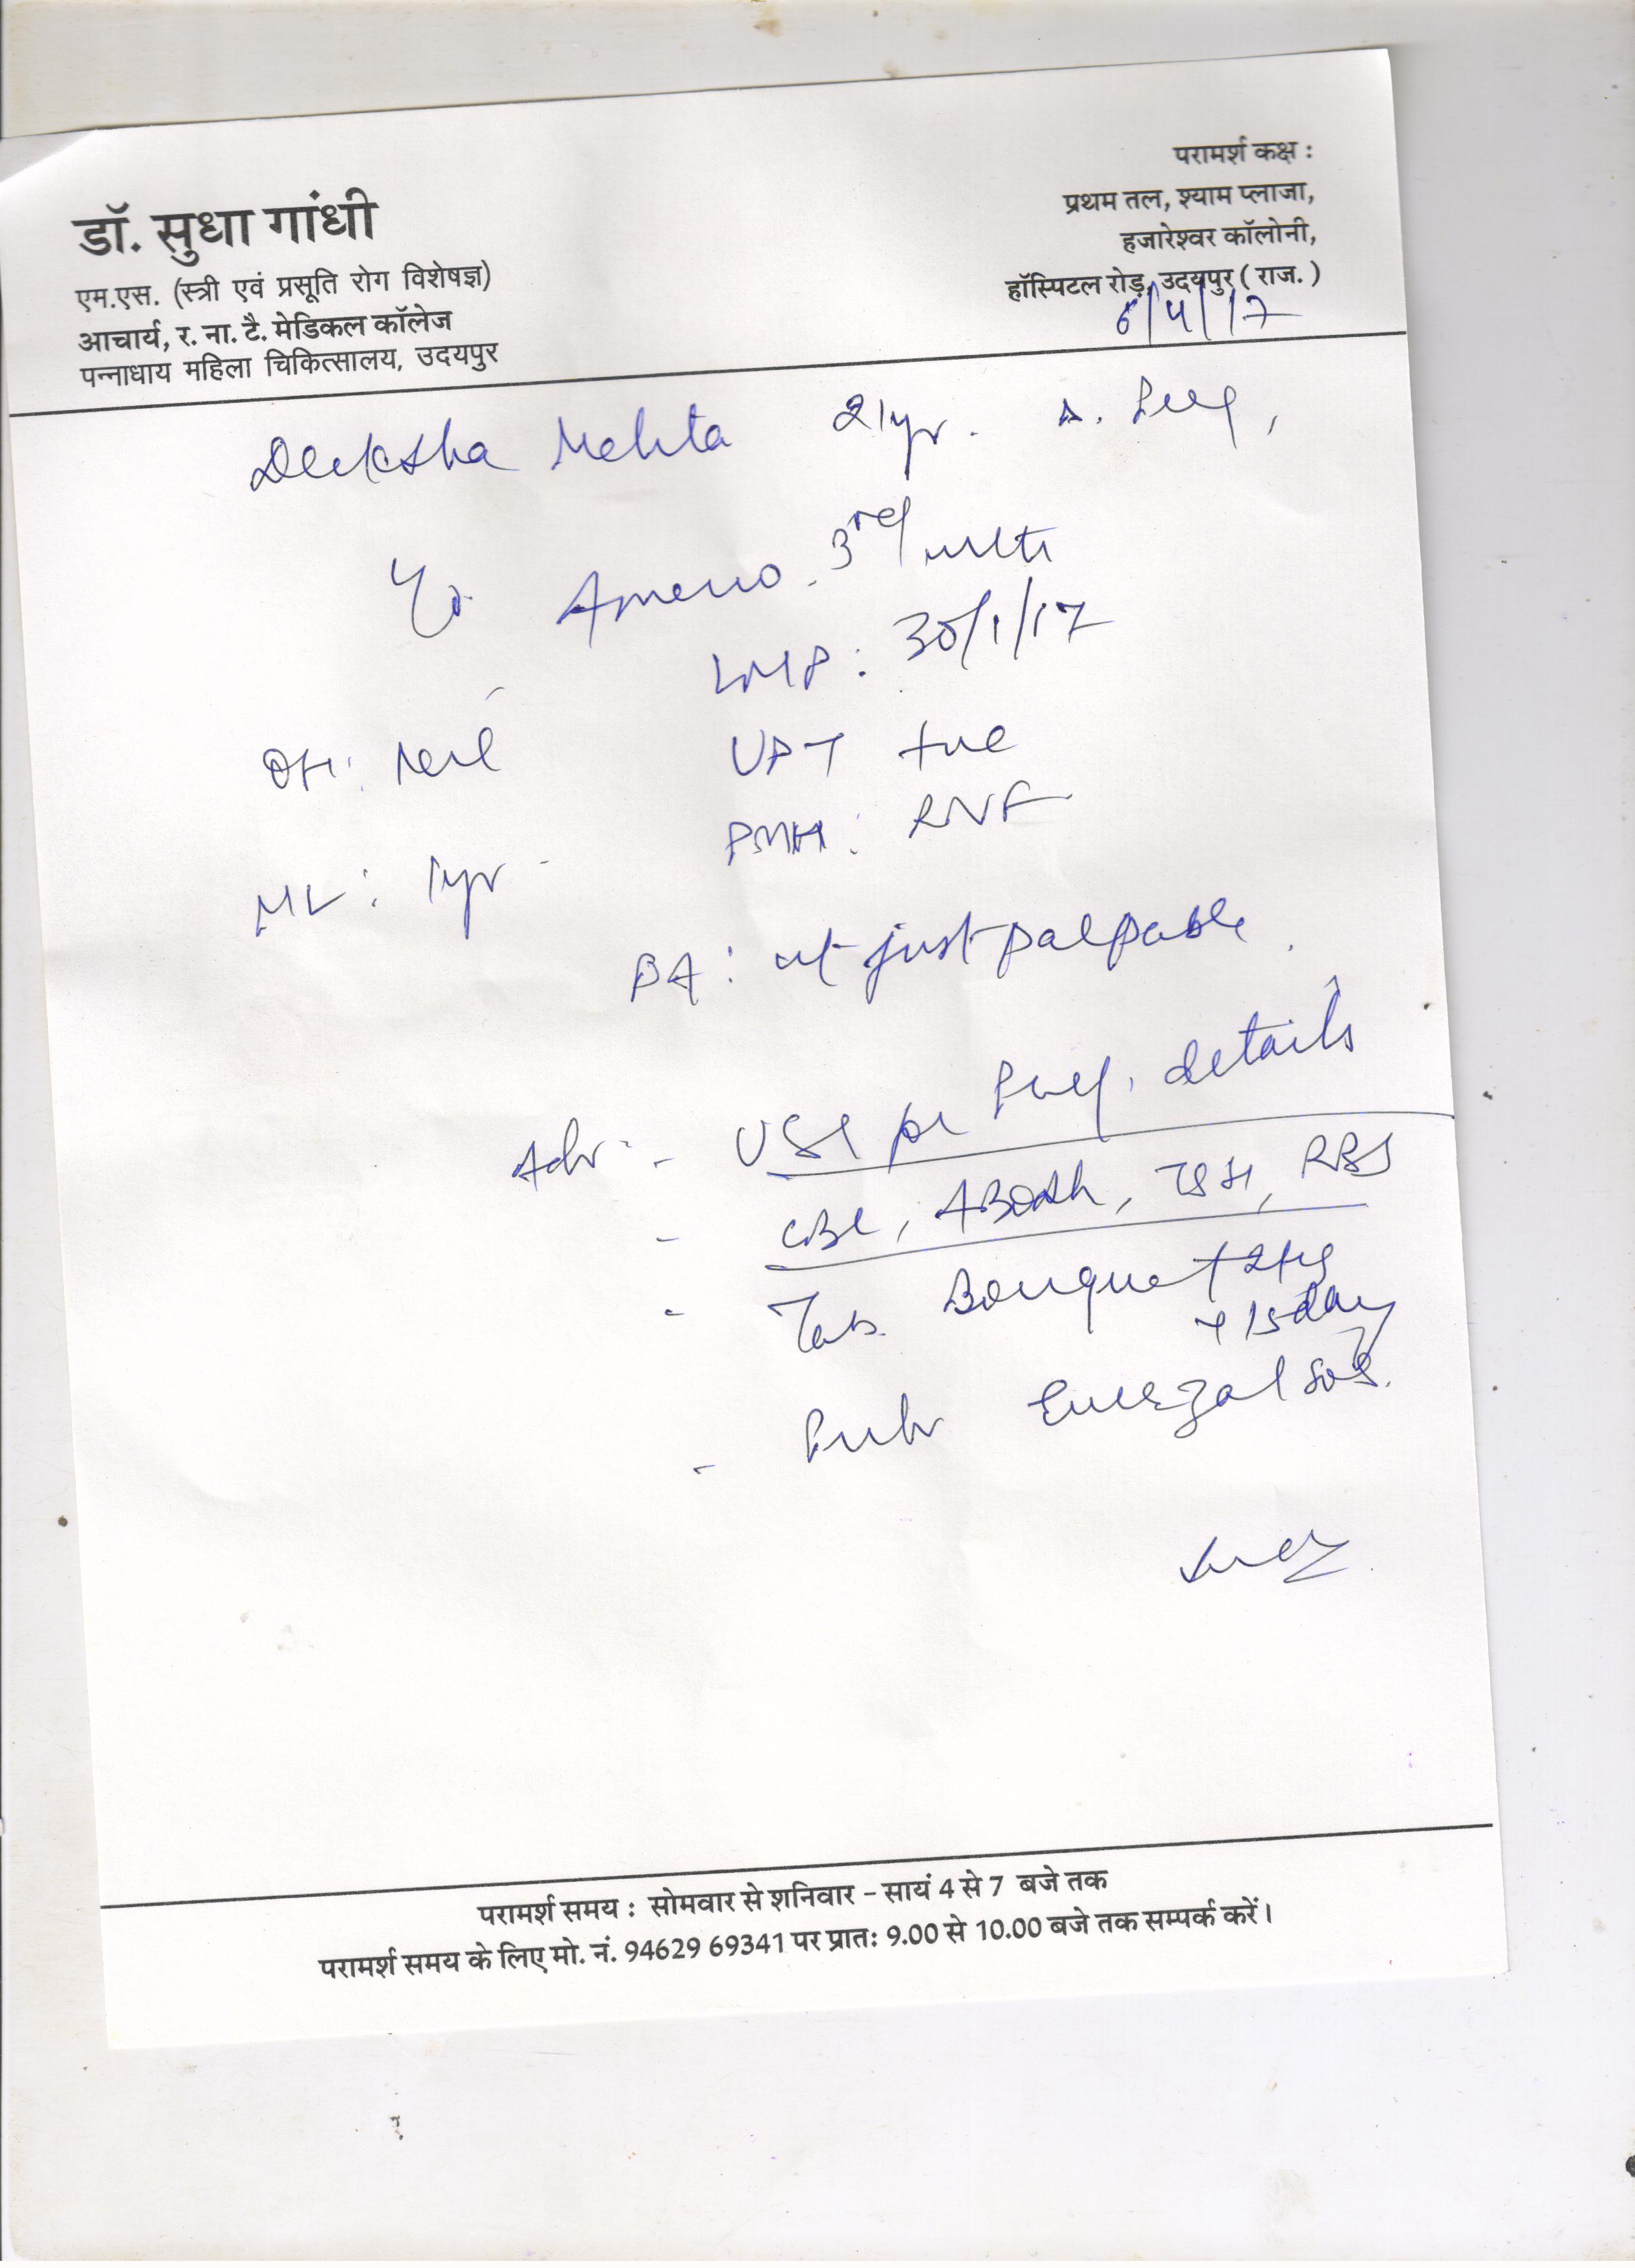 डॉ. सुधा गांधी
एम.एस. (स्त्री एवं प्रसूति रोग विशेषज्ञ)
आचार्य, र. ना. टै. मेडिकल कॉलेज
पन्नाधाय महिला चिकित्सालय, उदयपुर
परामर्श कक्ष :
प्रथम तल, श्याम प्लाजा,
हजारेश्वर कॉलोनी,
हॉस्पिटल रोड़, उदयपुर ( राज. )
6/4/17
Deeksha Mehta 21yr.
Ameno. 3rd mth
LMP : 30/1/17
OH : Nil UPT +ve
ML : 1yr PMH : RNF
PA : ut just palpable
Adv - USG for Preg. details
- CBC, ABORh, TSH, RBS
- Tab. Bouquet
x 15 day
-
परामर्श समय : सोमवार से शनिवार - सायं 4 से 7 बजे तक
परामर्श समय के लिए मो. नं. 94629 69341 पर प्रातः 9.00 से 10.00 बजे तक सम्पर्क करें।